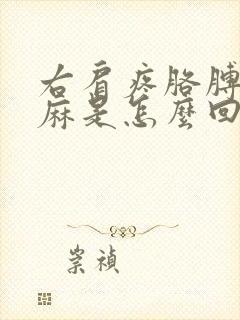 右肩疼胳膊
麻是怎麼回
崇禎